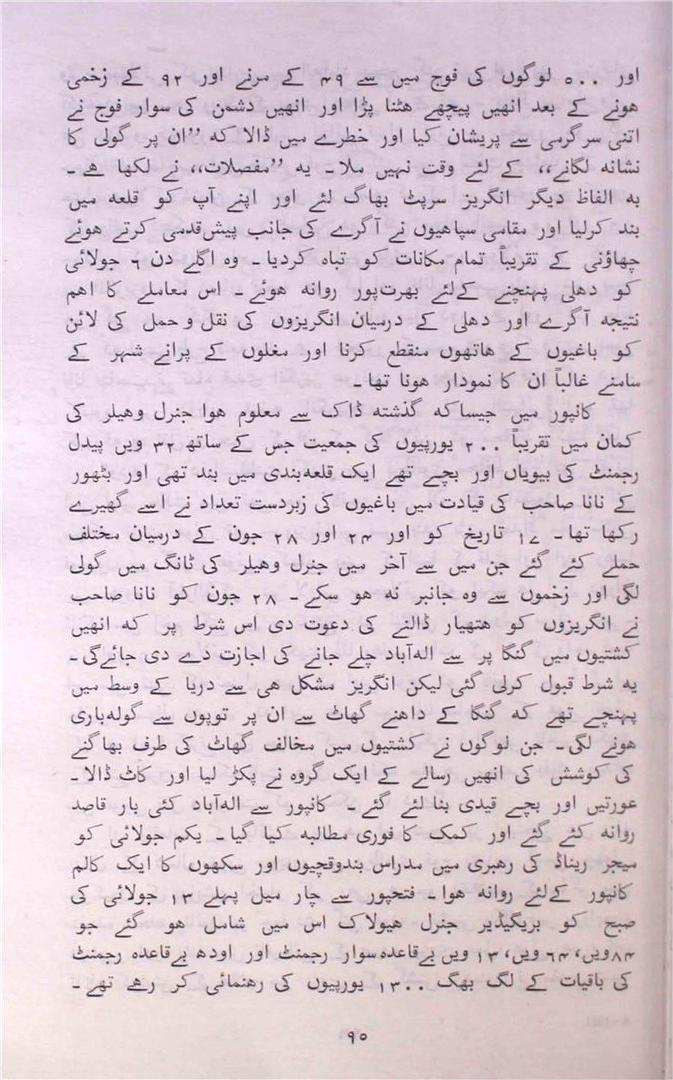 اور ۵۰۰ لوگوں کی فوج میں سے ۴۹ کے مرنے اور ۹۲ کے زخمی
ہونے کے بعد انھیں پیچھے ھٹنا پڑا اور انھیں دشمن کی سوار فوج نے
اتنی سرگرمی سے پریشان کیا اور خطرے میں ڈالا کہ ”ان پر گولی کا
نشانہ لگانے،، کے لئے وقت نہیں ملا۔ یہ ”مفصلات،، نے لکھا ھے۔
بہ الفاظ دیگر انگریز سرپٹ بھاگ لئے اور اپنے آپ کو قلعہ میں
بند کرلیا اور مقامی سپاھیوں نے آگرے کی جانب پیش‌قدمی کرتے ھوئے
چھاؤنی کے تقریباً تمام مکانات کو تباہ کردیا۔ وہ اگلے دن ۶ جولائی
کو دھلی پہنچنے کےلئے بھرت‌پور روانہ ھوئے۔ اس معاملے کا اھم
نتیجہ آگرے اور دھلی کے درمیان انگریزوں کی نقل و حمل کی لائن
کو باغیوں کے ھاتھوں منقطع کرنا اور مغلوں کے پرانے شہر کے
سامنے غالباً ان کا نمودار ھونا تھا۔
کانپور میں جیساکہ گذشتہ ڈاک سے معلوم ھوا جنرل وھیلر کی
کمان میں تقریباً ۲۰۰ یورپیوں کی جمعیت جس کے ساتھ ۳۲ ویں پیدل
رجمنٹ کی بیویاں اور بچے تھے ایک قلعہ‌بندی میں بند تھی اور بٹھور
کے نانا صاحب کی قیادت میں باغیوں کی زبردست تعداد نے اسے گھیرے
رکھا تھا۔ ۱۷ تاریخ کو اور ۲۴ اور ۲۸ جون کے درمیان مختلف
حملے کئے گئے جن میں سے آخر میں جنرل وھیلر کی ٹانگ میں گولی
لگی اور زخموں سے وہ جانبر نہ ھو سکے۔ ۲۸ جون کو نانا صاحب
نے انگریزوں کو ھتھیار ڈالنے کی دعوت دی اس شرط پر کہ انھیں
کشتیوں میں گنگا پر سے الہ‌آباد چلے جانے کی اجازت دے دی جائے‌گی۔
یہ شرط قبول کرلی گئی لیکن انگریز مشکل ھی سے دریا کے وسط میں
پہنچے تھے کہ گنگا کے داھنے گھاٹ سے ان پر توپوں سے گولہ‌باری
ھونے لگی۔ جن لوگوں نے کشتیوں میں مخالف گھاٹ کی طرف بھاگنے
کی کوشش کی انھیں رسالے کے ایک گروہ نے پکڑ لیا اور کاٹ ڈالا۔
عورتیں اور بچے قیدی بنا لئے گئے۔ کانپور سے الہ‌آباد کئی بار قاصد
روانہ کئے گئے اور کمک کا فوری مطالبہ کیا گیا۔ یکم جولائی کو
میجر ریناڈ کی رھبری میں مدراس بندوقچیوں اور سکھوں کا ایک کالم
کانپور کےلئے روانہ ھوا۔ فتحپور سے چار میل پہلے ۱۳ جولائی کی
صبح کو بریگیڈیر جنرل ھیولاک اس میں شامل ھو گئے جو
۸۴ویں، ۶۴ ویں، ۱۳ ویں بےقاعدہ سوار رجمنٹ اور اودھ بےقاعدہ رجمنٹ
کی باقیات کے لگ بھگ ۱۳۰۰ یورپیوں کی رھنمائی کر رھے تھے۔
۹۰